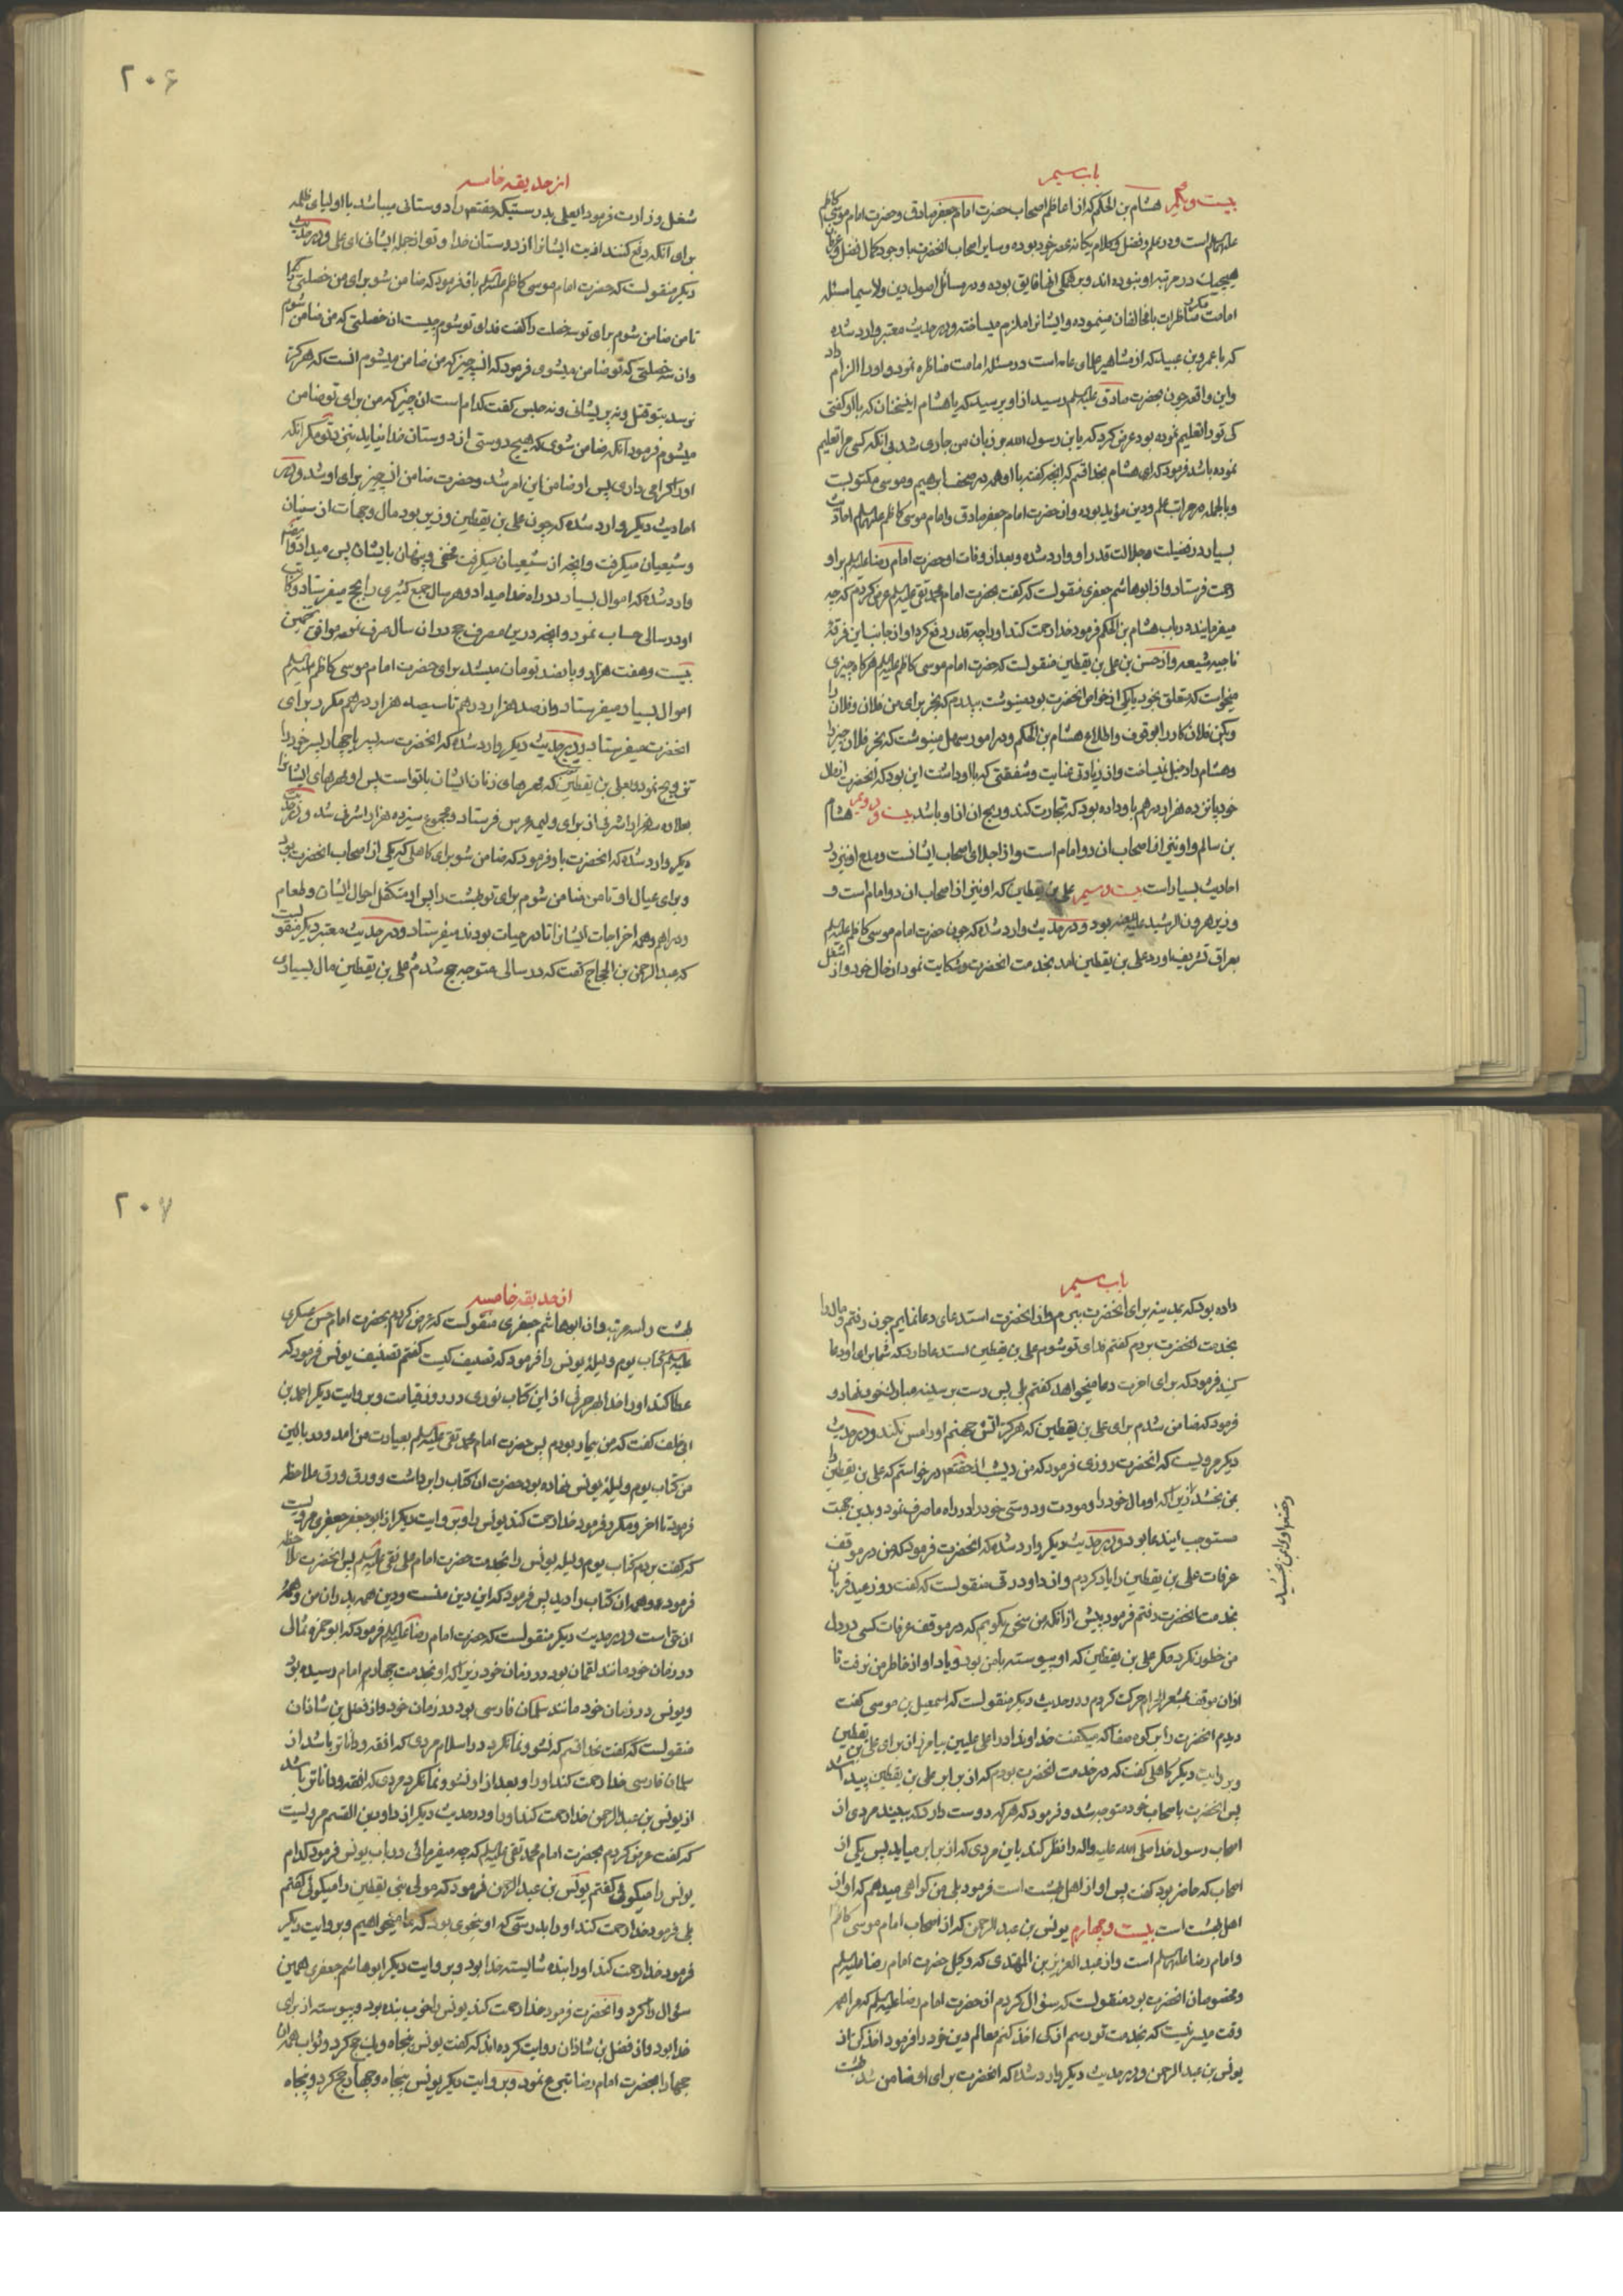 باب سیم
بیست و یکم هشام بن الحکم که از اعاظم اصحاب حضرت امام جعفر صادق و حضرت امام موسی کاظم
علیهم السلم است و در علم و فضل و کلام یکانه عصر خود بوده و سایر اصحاب انحضرت با وجود کمال فضل
هیچیك در مرتبه او نبوده اند و بر همکی انها فایق بوده و در مسائل اصول دین ولا سیما مسئله
امامت مکرر مناظرات با مخالفان مینموده و ایشانرا ملزم میساخته و در حدیث معتبر وارد شده
که با عمرو بن عبید که از مشاهیر علمای عامه است در مسئله امامت مناظره نمود و او را الزام داد
و این واقعه چون بحضرت صادق علیه السلم رسید از او پرسید که یا هشام این سخنان که با او کفتی
کی تو را تعلیم نموده بود عرض کرد که یابن رسول الله بر زبان من جاری شد بی انکه کسی مرا تعلیم
نموده باشد فرمود که ای هشام بخدا قسم که انچه کفته با او همه در صحف ابراهیم و موسی مکتوبست
و بالجمله در مراتب علم و دین مؤید بوده و از حضرت امام جعفر صادق و امام موسی کاظم علیهم السلم احادیث
بسیار در فضیلت و جلالت قدر او وارد شده و بعد از وفات او حضرت امام رضا علیه السلم بر او
رحمت فرستاد و از ابو هاشم جعفری منقولست که کفت بحضرت امام محمد تقی علیه السلم عرض کردم که چه
میفرمایند در باب هشام بن الحکم فرمود خدا رحمت کند او را چه قدر دفع کرد او از جانب این فرقهٔ
ناجیه شیعه و از حسن بن علی بن یقطین منقولست که حضرت امام موسی کاظم علیه السلم هر کاه چیزی
میخواست که متعلق بخود یا یکی از خواص انحضرت بود مینوشت بپدرم که بخر برای من فلان و فلان را
و بکن فلان کار را بوقوف و اطلاع هشام بن الحکم و در امور سهل مینوشت که بخر فلان چیز را
و هشام را دخیل نمیساخت و از زیادتی عنایت و شفقتی که با او داشت این بود که انحضرت از مال
خود پانزده هزار درهم باو داده بود که تجارت کند و ربح ان از او باشد بیست و دویم هشام
بن سالم و او نیز از اصحاب ان دو امام است و از اجلای اصحاب ایشانست و مدح او نیز در
احادیث بسیار است بیست و سیم علی بن یقطین که او نیز از اصحاب ان دو امام است و
وزیر هرون الرشید علیه اللعنه بود و در حدیث وارد شده که چون حضرت امام موسی کاظم علیه السلم
بعراق تشریف اورد علی بن یقطین امد بخدمت انحضرت و شکایت نمود از حال خود و از شغل
۲۰۶
از حدیقه خامسه
شغل وزارت فرمود یا علی بدرستیکه حقتعم را دوستانی میباشد با اولیای ظلمه
برای انکه دفع کنند اذیت ایشانرا از دوستان خدا و تو از جمله ایشانی ای علی و در حدیث
دیکر منقولست که حضرت امام موسی کاظم علیه السلم باو فرمود که ضامن شو برای من خصلتی را
تا من ضامن شوم برای تو سه خصلت را کفت فدای تو شوم چیست ان خصلتی که من ضامن شوم
و ان سه خصلتی که تو ضامن میشوی فرمود که ان سه چیز که من ضامن میشوم انست که هرکز
نرسد بتو قتل و نه پریشانی و نه حبس کفت کدام است ان چیز که من برای تو ضامن
میشوم فرمود انکه ضامن شوی که هیچ دوستی از دوستان خدا نیاید بنزد تو مکر انکه
او را کرامی داری پس او ضامن این امر شد و حضرت ضامن ان سه چیز برای او شد و در
احادیث دیکر وارد شده که چون علی بن یقطین وزیر بود مال وجهات از سنیان
و شیعیان میکرفت و انچه از شیعیان میکرفت مخفی و پنهان بایشان پس میداد و ایضا
وارد شده که اموال بسیار در راه خدا میداد و هر سال جمع کثیری را بحج میفرستاد و کاتب
او در سالی حساب نمود و انچه در این مصرف حج در ان سال صرف نموده موافق تخمین
بیست و هفت هزار و پانصد تومان میشد برای حضرت امام موسی کاظم علیه السلم
اموال بسیار میفرستاد و از صد هزار درهم تا سیصد هزار درهم مکرر برای
انحضرت میفرستاد و در حدیث دیکر وارد شده که انحضرت سه پسر یا چهار پسر خود را
تزویج نمود و بعلی بن یقطین نوشت که مهرهای زنان ایشان با تو است پس او مهرهای ایشانرا
بعلاوه سه هزار اشرفی از برای ولیمه عرس فرستاد و مجموع سیزده هزار اشرفی شد و در حدیث
دیکر وارد شده که انحضرت باو فرمود که ضامن شو برای کاهلی که یکی از اصحاب انحضرت بود
و برای عیال او تا من ضامن شوم برای تو بهشت را پس او متکفل احوال ایشان و طعام
و دراهم و همه اخراجات ایشانرا تا در حیات بودند میفرستاد و در حدیث معتبر دیکر منقولست
که عبد الرحمن بن الحجاج کفت که در سالی متوجه حج شدم و علی بن یقطین مال بسیاری
باب سیم
داده بود که بمدینه برای انحضرت ببرم و از انحضرت استدعای دعا نمایم چون رفتم و مال را
بخدمت انحضرت بردم کفتم فدای تو شوم علی بن یقطین استدعا دارد که شما برای او دعا
کنید فرمود که برای اخرت دعا میخواهد کفتم بلی پس دست بر سینه مبارك خود نهاد و
فرمود که ضامن شدم برای علی بن یقطین که هرکز اتش جهنم او را مس نکند و در حدیث
دیکر مرویست که انحضرت روزی فرمود که من دیشب از حقتعم درخواستم که علی بن یقطین را
بمن بخشد زیرا که او مال خود را و مودت و دوستی خود را در راه ما صرف نمود و بدین جهت
مستوجب این دعا بود و در حدیث دیکر وارد شده که انحضرت فرمود که من در موقف
عرفات علی بن یقطین را یاد کردم و از داود رقی منقولست که کفت روز عید قربان
بخدمت انحضرت رفتم فرمود پیش از انکه من سخن بکویم که در موقف عرفات کسی در دل
من خطور نکرد مکر علی بن یقطین که او پیوسته با من بود و یاد او از خاطر من نرفت تا
از ان موقف بمشعر الحرام حرکت کردم و در حدیث دیکر منقولست که اسمعیل بن موسی کفت
دیدم انحضرت را بر کوه صفا که میکفت خداوندا در اعلی علیین بیامرز از برای علی بن یقطین
و بروایت دیکر کاهلی کفت که در خدمت انحضرت بودم که از برابر علی بن یقطین پیدا شد
پس انحضرت باصحاب خود متوجه شد و فرمود که هر که دوست دارد که ببیند مردی از
اصحاب رسول خدا صلی الله علیه واله را نظر کند باین مردی که از برابر میاید پس یکی از
اصحاب که حاضر بود کفت پس او از اهل بهشت است فرمود بلی من کواهی میدهم که او از
اهل بهشت است بیست و چهارم یونس بن عبد الرحمن که از اصحاب امام موسی کاظم
و امام رضا علیهم السلم است و از عبد العزیز بن المهتدی که وکیل حضرت امام رضا علیه السلم
و مخصوصان انحضرت بود منقولست که سؤال کردم از حضرت امام رضا علیه السلم که مرا هر
وقت میسر نیست که بخدمت تو رسم از کی اخذ کنم معالم دین خود را فرمود اخذ کن از
یونس بن عبد الرحمن و در حدیث دیکر وارد شده که انحضرت برای او ضامن شد بهشت
۲۰۷
از حدیقه خامسه
بهشت را سه مرتبه و از ابو هاشم جعفری منقولست که عرض کردم بحضرت امام حسن عسکری
علیه السلم کتاب یوم و لیلهٔ یونس را فرمود که تصنیف کیست کفتم تصنیف یونس فرمود که
عطا کند او را خدا بهر حرفی از این کتاب نوری در روز قیامت و بروایت دیکر احمد بن
ابی خلف کفت که من بیمار بودم پس حضرت امام محمد تقی علیه السلم بعیادت من امد و در بالین
من کتاب یوم و لیلهٔ یونس نهاده بود حضرت ان کتاب را برداشت و ورق ورق ملاحظه
فرمود تا اخر و مکرر فرمود خدا رحمت کند یونس را و بروایت دیکر از ابو جعفر جعفری مرویست
که کفت بردم کتاب یوم و لیله یونس را بخدمت حضرت امام علی نقی علیه السلم پس انحضرت ملاحظه
فرمود و همه ان کتاب را دید پس فرمود که این دین منست و دین همه پدران من و همهٔ
ان حق است و در حدیث دیکر منقولست که حضرت امام رضا علیه السلم فرمود که ابو حمزه ثمالی
در زمان خود مانند لقمان بود در زمان خود زیرا که او بخدمت چهارم امام رسیده بود
و یونس در زمان خود مانند سلمان فارسی بود در زمان خود و از فضل بن شاذان
منقولست که کفت بخدا قسم که نشو و نما نکرد در اسلام مردی که افقه و داناتر باشد از
سلمان فارسی خدا رحمت کند او را و بعد از او نشو و نما نکرد مردی که افقه و داناتر باشد
از یونس بن عبد الرحمن خدا رحمت کند او را و در حدیث دیکر از داود بن القسم مرویست
که کفت عرض کردم بحضرت امام محمد تقی علیه السلم که چه میفرمائی در باب یونس فرمود کدام
یونس را میکوئی کفتم یونس بن عبد الرحمن فرمود که مولی بنی یقطین را میکوئی کفتم
بلی فرمود خدا رحمت کند او را بدرستی که او بنحوی بود که ما میخواهیم و بروایت دیکر
فرمود خدا رحمت کند او را بنده شایسته خدا بود و بروایت دیکر ابو هاشم جعفری همین
سؤال را کرد و انحضرت فرمود خدا رحمت کند یونس را خوب بنده بود و پیوسته از برای
خدا بود و از فضل بن شاذان روایت کرده اند که کفت یونس پنجاه و یك حج کرد و ثواب همه ان
حجها را بحضرت امام رضا تبرع نمود و بروایت دیکر یونس پنجاه و چهار حج کرد و پنجاه